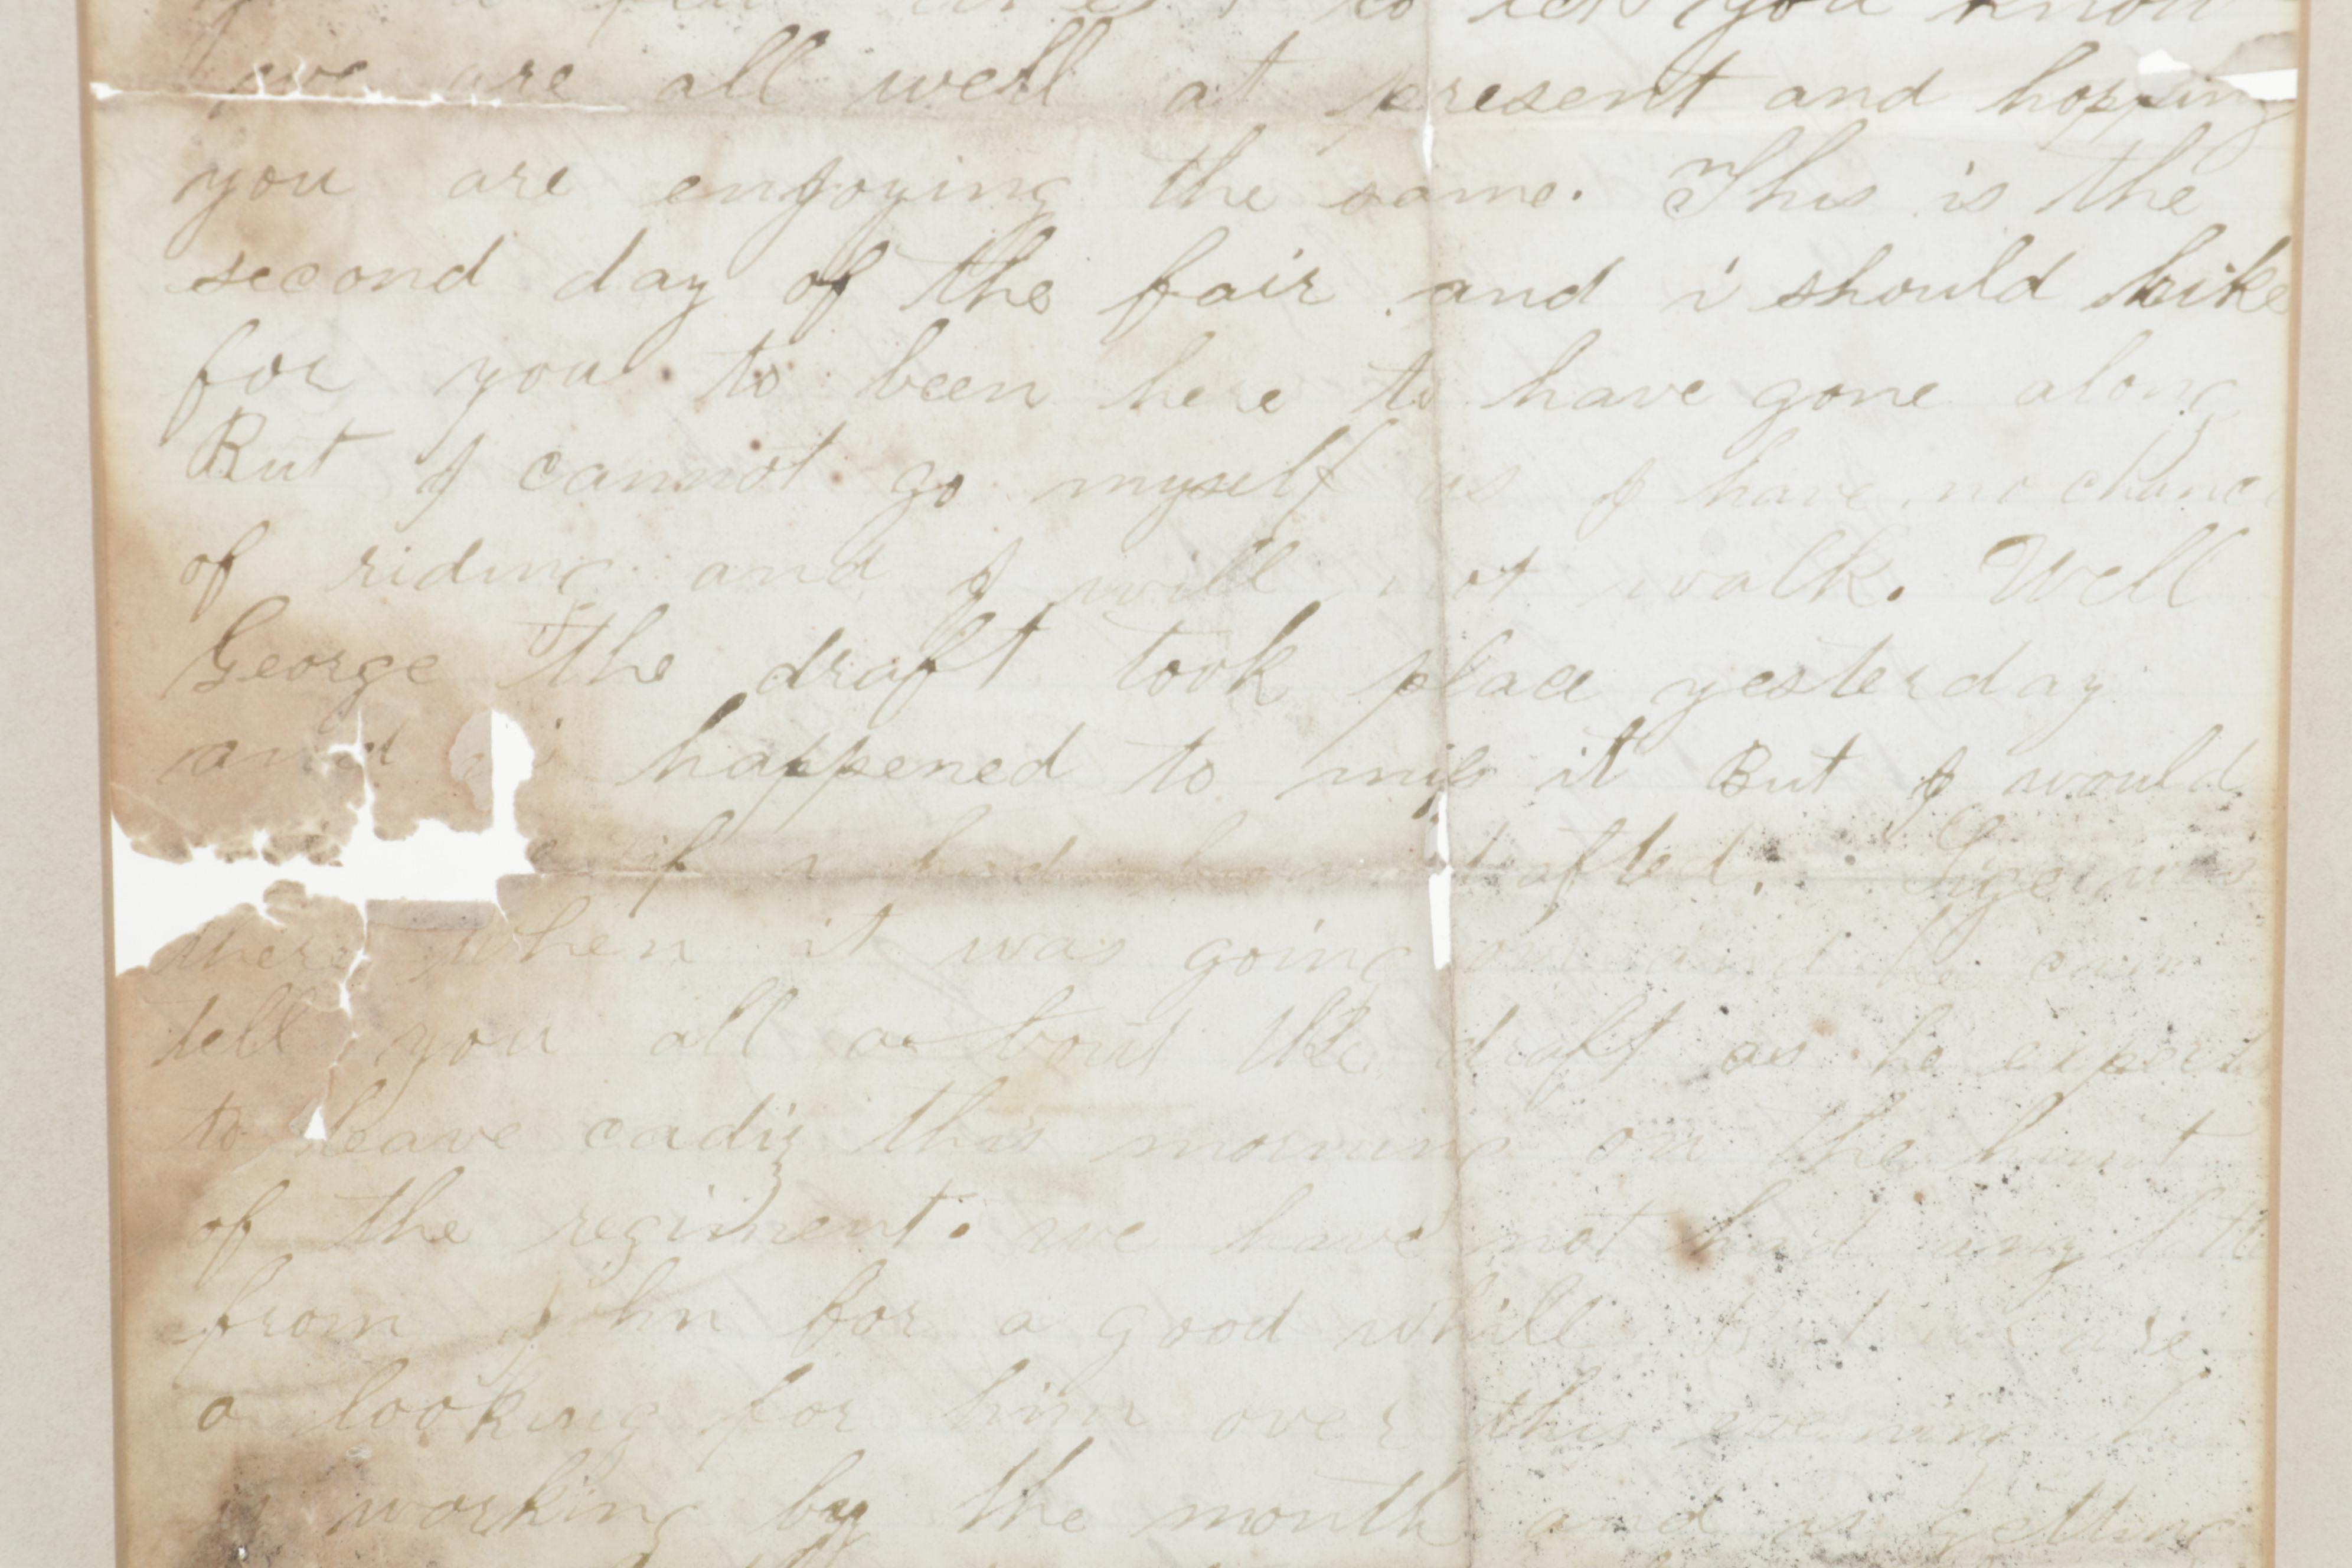 to let you know
we are all well at present and hopping
you are enjoying the same. This is the
second day of the fair and i should like
for you to been here to have gone along
But I cannot go myself as I have no chance
of riding and I will not walk. Well
George the draft took place yesterday
and i happened to miss it But I would
if i had drafted.
there when it was going on and he can
tell you all about the draft as he expects
to leave cadiz this morning on the hunt
of the regiment. we have not had any
from John for a good while are
a looking for him over this evening he
is working by the month and is getting